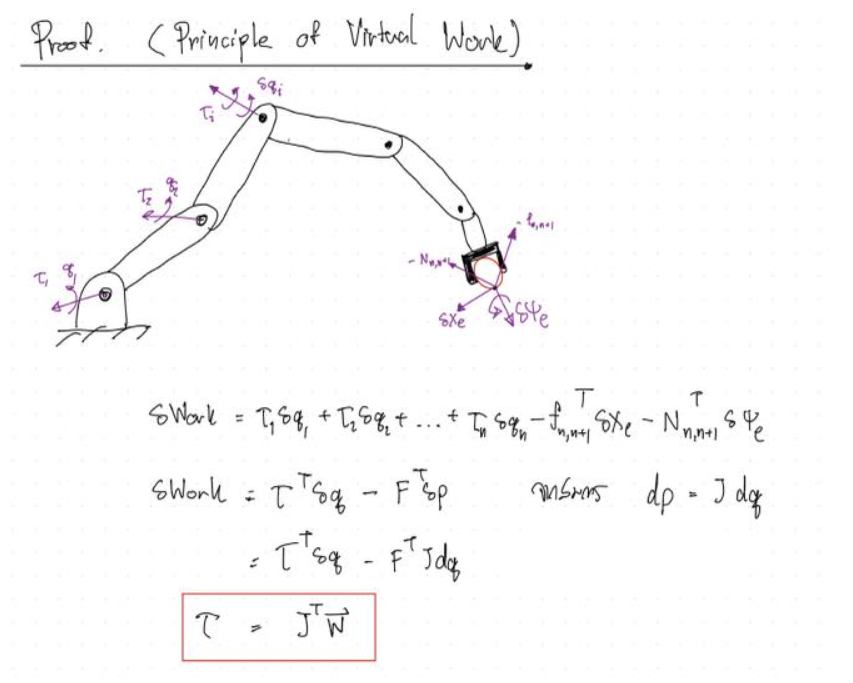 Proof. (Principle of Virtual Work)
δqᵢ
τᵢ
τ₂ q₂
-fₙ,ₙ₊₁
-Nₙ,ₙ₊₁
τ₁ q₁
δxₑ δΨₑ
δWork = τ₁δq₁ + τ₂δq₂ + ... + τₙδqₙ - fₙ,ₙ₊₁ᵀ δxₑ - Nₙ,ₙ₊₁ᵀ δΨₑ
δWork = τᵀδq - Fᵀδp dp = J dq
= τᵀδq - FᵀJdq
τ = JᵀW⃗